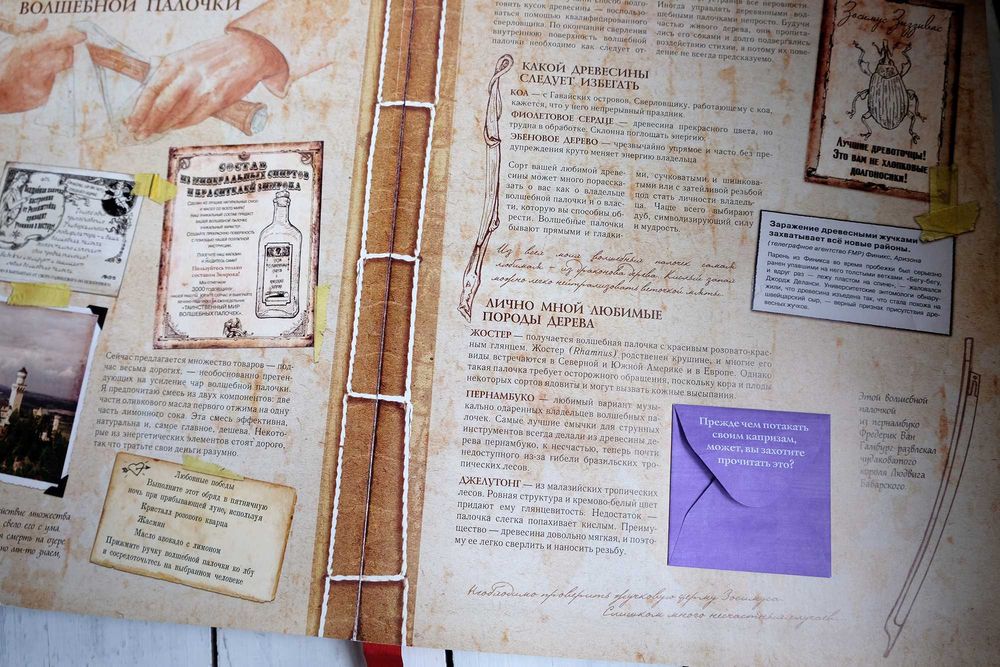 ВОЛШЕБНОЙ ПАЛОЧКИ
СОСТАВ
ИЗ МИНЕРАЛЬНЫХ СПИРТОВ
И КРАСИТЕЛЕЙ ЗИЗРОКА
Пользуйтесь только
составом Зизрока!
3000
"ТАИНСТВЕННЫЙ МИР
ВОЛШЕБНЫХ ПАЛОЧЕК"
Сейчас предлагается множество товаров — под-
час весьма дорогих, — необоснованно претен-
дующих на усиление чар волшебной палочки.
Я предпочитаю смесь из двух компонентов: две
части оливкового масла первого отжима на одну
часть лимонного сока. Эта смесь эффективна,
натуральна и, самое главное, дешева. Некото-
рые из энергетических элементов стоят дорого,
так что тратьте свои деньги разумно.
Любовные победы
Выполните этот обряд в пятничную
ночь при прибывающей луне, используя
Кристалл розового кварца
Жасмин
Масло авокадо с лимоном
Прижмите ручку волшебной палочки ко лбу
и сосредоточьтесь на выбранном человеке
товить кусок древесины — воспользо-
ваться помощью квалифицированного
сверловщика. По окончании сверления
внутреннюю поверхность волшебной
палочки необходимо как следует от-
Иногда управлять деревянными вол-
шебными палочками непросто. Будучи
частью живого дерева, они пропита-
лись его соками и долго подвергались
воздействию стихии, а потому их пове-
дение не всегда предсказуемо.
КАКОЙ ДРЕВЕСИНЫ
СЛЕДУЕТ ИЗБЕГАТЬ
КОА — с Гавайских островов. Сверловщику, работающему с коа,
кажется, что у него непрерывный праздник.
ФИОЛЕТОВОЕ СЕРДЦЕ — древесина прекрасного цвета, но
трудна в обработке. Склонна поглощать энергию.
ЭБЕНОВОЕ ДЕРЕВО — чрезвычайно упрямое и часто без пре-
дупреждения круто меняет энергию владельца
Сорт вашей любимой древе-
сины может много порасска-
зать о вас как о владельце
волшебной палочки и о влас-
ти, которую вы способны об-
рести. Волшебные палочки
бывают прямыми и гладки-
ми, сучковатыми и шишкова-
тыми или с затейливой резьбой
под стать личности владель-
ца. Чаще всего выбирают
дуб, символизирующий силу
и мудрость.
Из всех моих волшебных палочек самая
любимая — из драконова дерева. Кислый запах
можно легко нейтрализовать веточкой мяты.
ЛИЧНО МНОЙ ЛЮБИМЫЕ
ПОРОДЫ ДЕРЕВА
ЖОСТЕР — получается волшебная палочка с красивым розовато-крас-
ным глянцем. Жостер (Rhamnus), родственен крушине, и многие его
виды встречаются в Северной и Южной Америке и в Европе. Однако
такая палочка требует осторожного обращения, поскольку кора и плоды
некоторых сортов ядовиты и могут вызвать кожные высыпания.
ПЕРНАМБУКО — любимый вариант музы-
кально одаренных владельцев волшебных па-
лочек. Самые лучшие смычки для струнных
инструментов всегда делали из древесины де-
рева пернамбуко, к несчастью, теперь почти
недоступного из-за гибели бразильских тро-
пических лесов.
ДЖЕЛУТОНГ — из малазийских тропических
лесов. Ровная структура и кремово-белый цвет
придают ему глянцевитость. Недостаток —
палочка слегка попахивает кислым. Преиму-
щество — древесина довольно мягкая, и поэто-
му ее легко сверлить и наносить резьбу.
Прежде чем потакать
своим капризам,
может, вы захотите
прочитать это?
Этой волшебной
палочкой
из пернамбуко
Фредерик Ван
Гамбург развлекал
чудаковатого
короля Людвига
Баварского.
Необходимо проверить фруковую ферму Зосимуса
Слишком много несчастных случаев.
Зосимус Зиззивас
ЛУЧШИЕ ДРЕВОТОЧЦЫ!
ЭТО ВАМ НЕ ХЛОПКОВЫЕ
ДОЛГОНОСИКИ!
Заражение древесными жучками
захватывает всё новые районы.
(телеграфное агентство FMP) Финикс, Аризона
Парень из Финикса во время пробежки был серьезно
ранен упавшими на него толстыми ветками. «Бегу-бегу,
и вдруг раз — лежу пластом на спине», — жаловался
Джордж Деланси. Университетские энтомологи обнару-
жили, что древесина изъедена так, что стала похожа на
швейцарский сыр, — верный признак присутствия дре-
весных жучков.